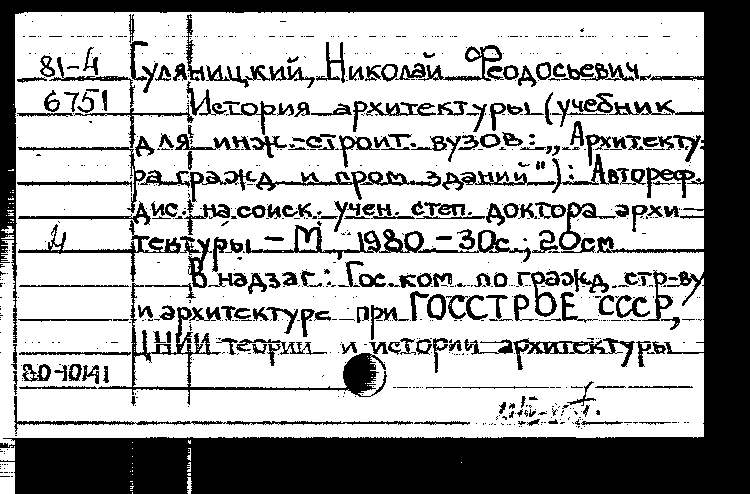 81-4 Гуляницкий, Николай Феодосьевич
6751 История архитектуры (учебник
для инж.-строит. вузов: „Архитекту-
ра гражд. и пром. зданий"): Автореф.
дис. на соиск. учен. степ. доктора архи-
тектуры - М., 1980 - 30с.; 20см
В надзаг.: Гос. ком. по гражд. стр-ву
и архитектуре при ГОССТРОЕ СССР,
ЦНИИ теории и истории архитектуры
80-10141